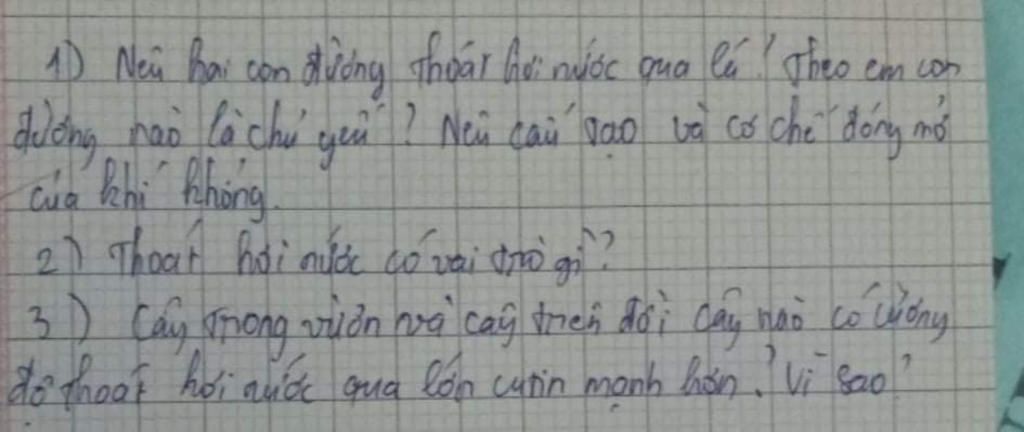 1) Nêu hai con đường thoát hơi nước qua lá? Theo em con
đường nào là chủ yếu? Nêu cấu tạo và cơ chế đóng mở
của khí khổng.
2) Thoát hơi nước có vai trò gì?
3) Cây trong vườn và cây trên đồi cây nào có cường
độ thoát hơi nước qua lớp cutin mạnh hơn? Vì sao?